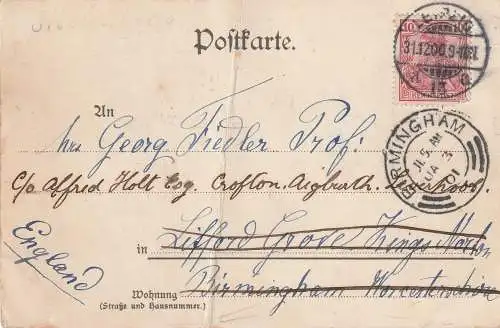 Postkarte.
10
LEIPZIG
31.12.00.9-10V.
13
An
Hrs Georg Fiedler Prof:
C/o Alfred Holt Esq. Crofton, Aigburth. Liverpool.
BIRMINGHAM
JA 3
01
England
in Lifford Grove Kings Norton
Birmingham Worcestershire
Wohnung
(Straße und Hausnummer.)